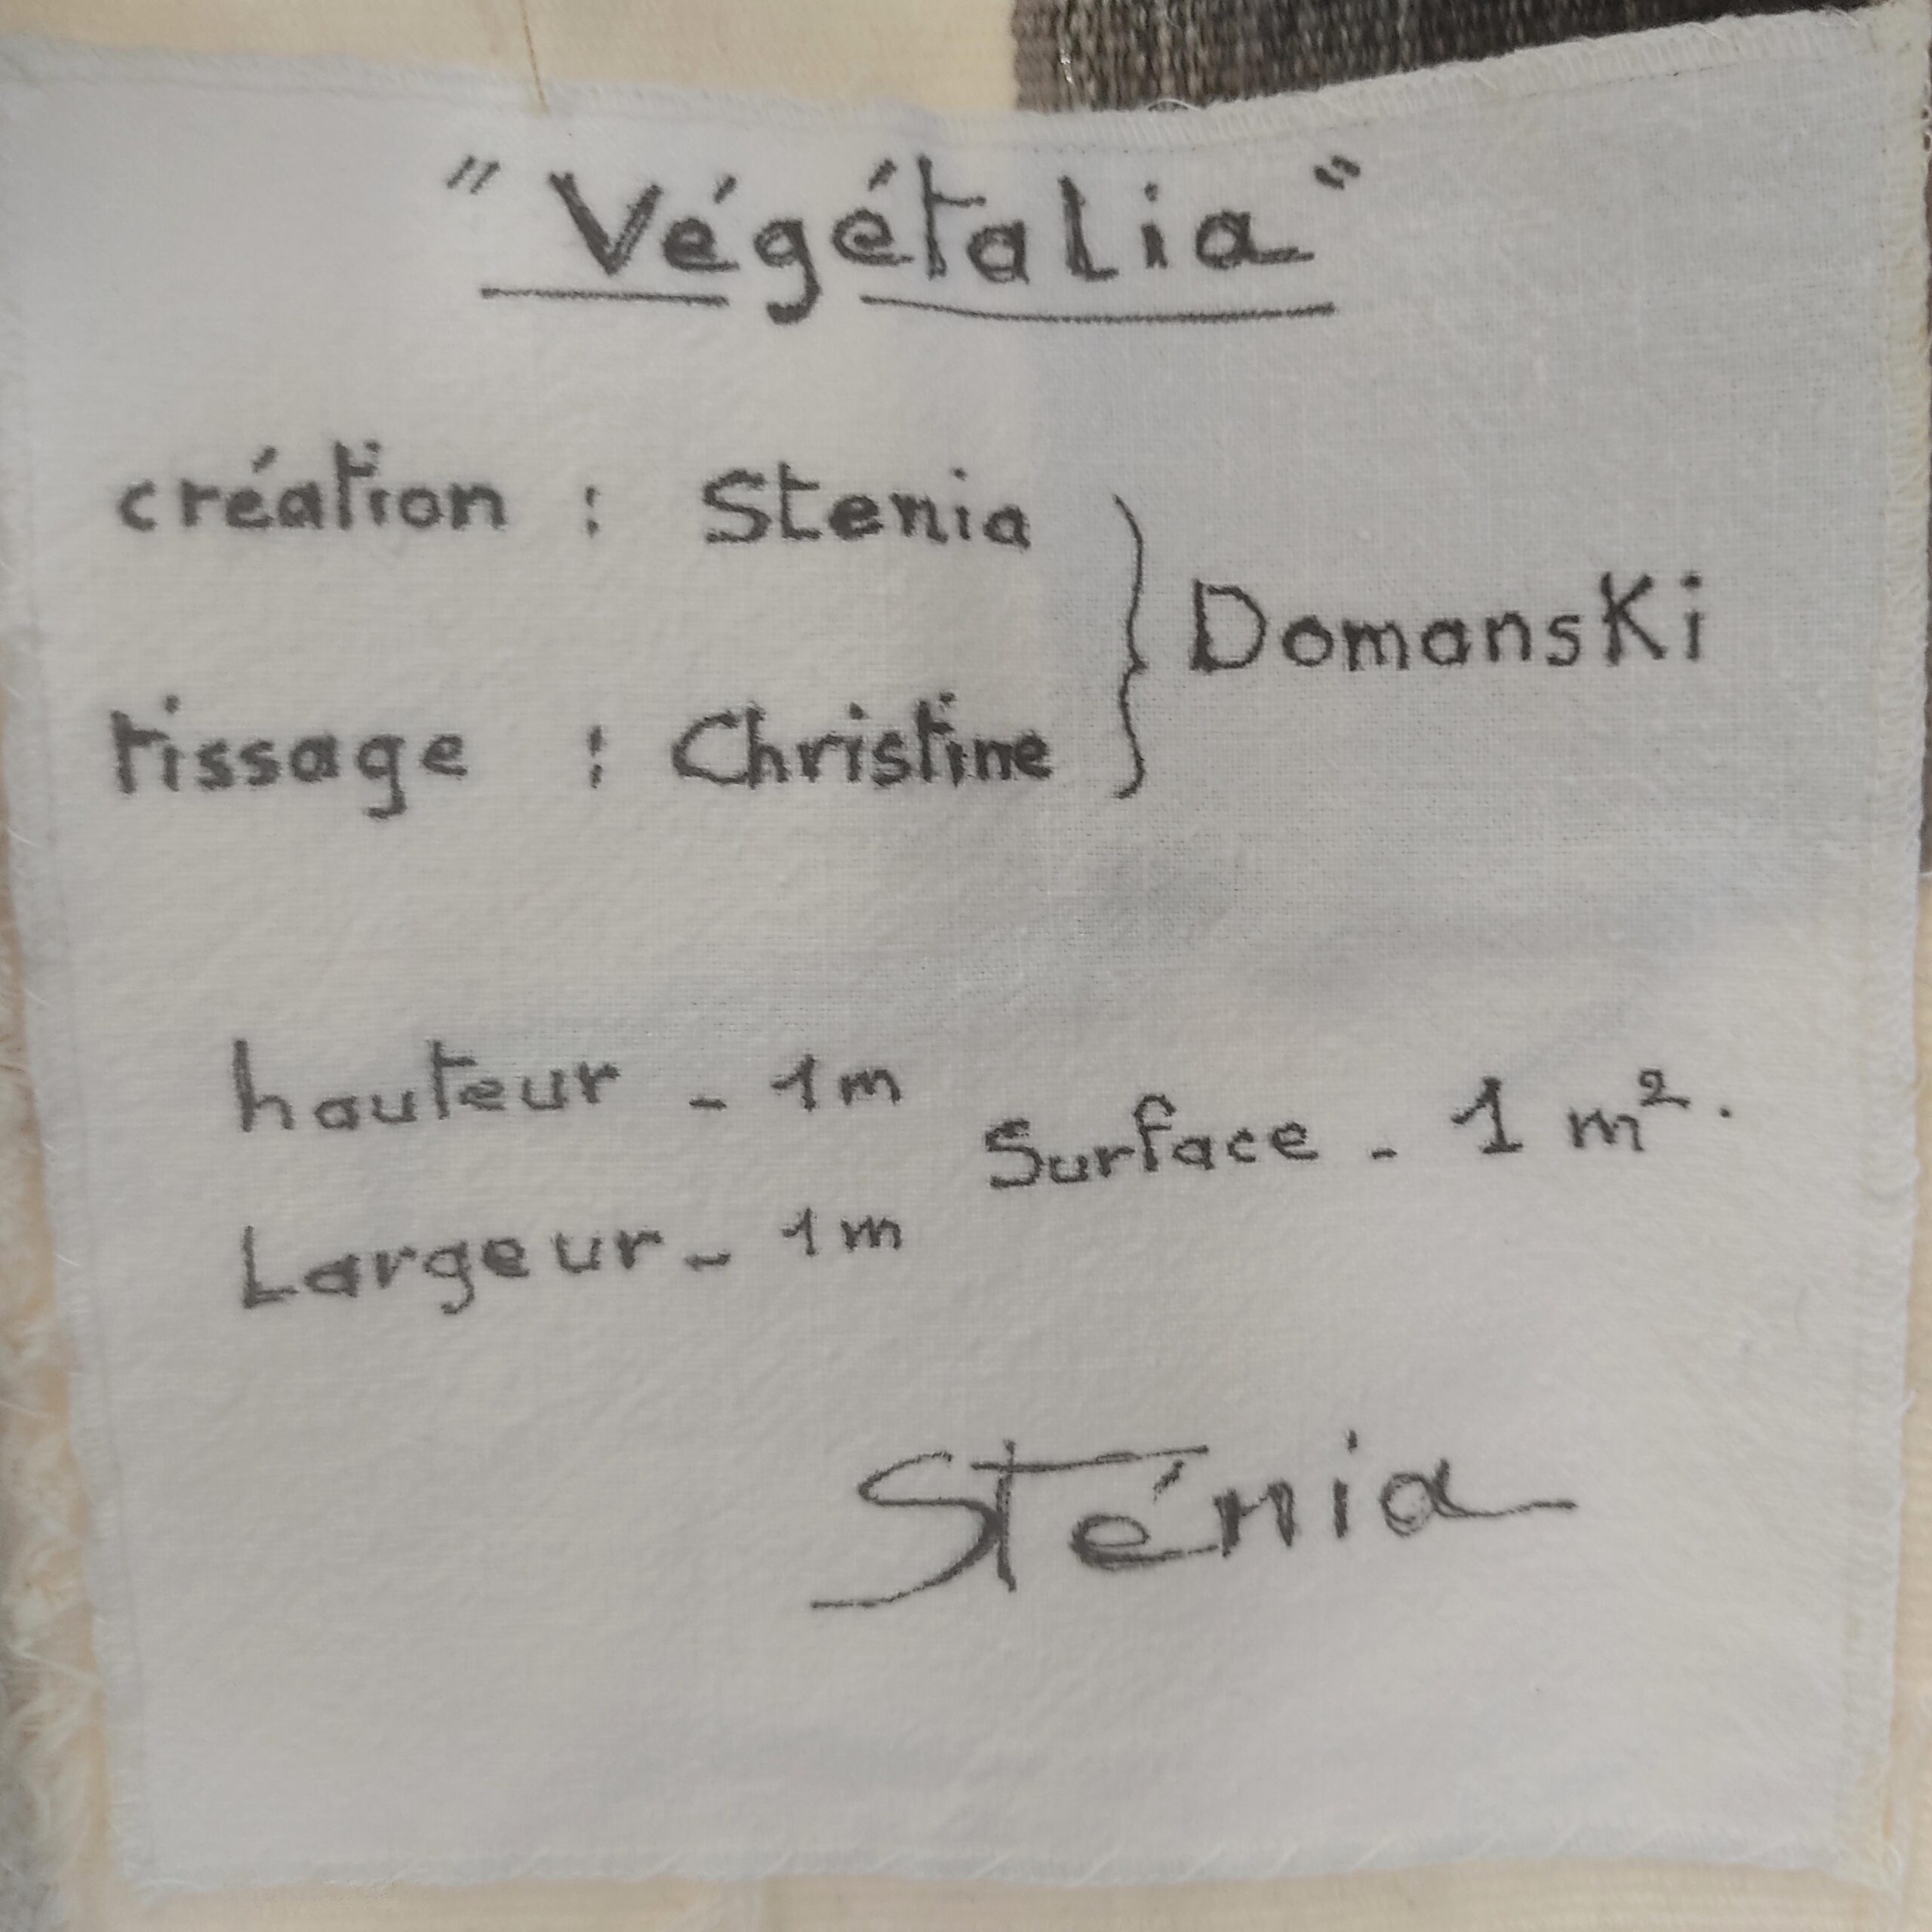 " Végétalia "
création : Stenia
} Domanski
tissage : Christine
hauteur - 1m
Surface - 1 m².
Largeur - 1m
Sténia